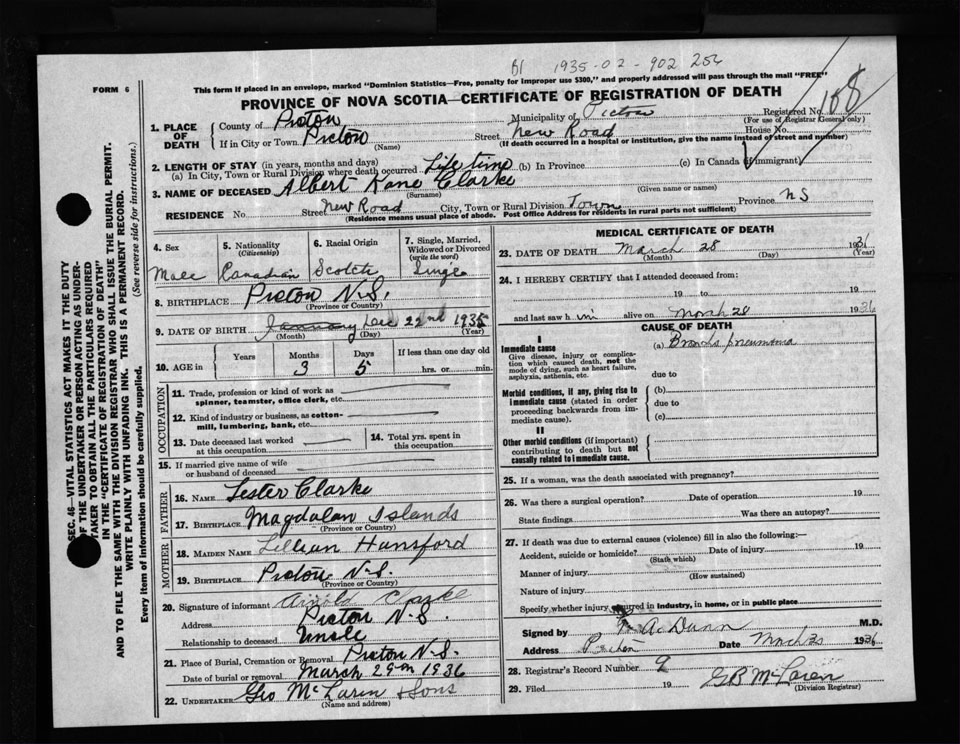 1935-02-902 254
FORM 6
This form if placed in an envelope, marked "Dominion Statistics—Free, penalty for improper use $300," and properly addressed will pass through the mail "FREE"
PROVINCE OF NOVA SCOTIA—CERTIFICATE OF REGISTRATION OF DEATH
Registered No. 108
(For use of Registrar General only)
1. PLACE OF DEATH
County of Pictou Municipality of Pictou
If in City or Town Pictou Street New Road House No.
(Name) (If death occurred in a hospital or institution, give the name instead of street and number)
2. LENGTH OF STAY (in years, months and days)
(a) In City, Town or Rural Division where death occurred Life time (b) In Province (c) In Canada if immigrant
3. NAME OF DECEASED Albert Kane Clarke
(Surname) (Given name or names)
RESIDENCE No. Street New Road City, Town or Rural Division Town Province N S
(Residence means usual place of abode. Post Office Address for residents in rural parts not sufficient)
4. Sex
Male
5. Nationality
(Citizenship)
Canadian
6. Racial Origin
Scotch
7. Single, Married, Widowed or Divorced
(write the word)
Single
8. BIRTHPLACE Pictou N.S.
(Province or Country)
9. DATE OF BIRTH January Dec 22nd 1935
(Month) (Day) (Year)
10. AGE in
Years Months Days If less than one day old
3 5 hrs. or min.
OCCUPATION
11. Trade, profession or kind of work as
spinner, teamster, office clerk, etc.
12. Kind of industry or business, as cotton-
mill, lumbering, bank, etc.
13. Date deceased last worked
at this occupation
14. Total yrs. spent in
this occupation
15. If married give name of wife
or husband of deceased
FATHER
16. NAME Lester Clarke
17. BIRTHPLACE Magdalan Islands
(Province or Country)
MOTHER
18. MAIDEN NAME Lillian Hansford
19. BIRTHPLACE Pictou N.S.
(Province or Country)
20. Signature of informant Arnold Clarke
Address Pictou N.S.
Relationship to deceased Uncle
21. Place of Burial, Cremation or Removal Pictou N.S.
Date of burial or removal March 29th 1936
22. UNDERTAKER Geo McLaren & Sons
(Name and address)
MEDICAL CERTIFICATE OF DEATH
23. DATE OF DEATH March 28
(Month) (Day) (Year)
24. I HEREBY CERTIFY that I attended deceased from:
19 to 19
and last saw h im alive on March 28 1936
CAUSE OF DEATH
I
Immediate cause
Give disease, injury or complica-
tion which caused death, not the
mode of dying, such as heart failure,
asphyxia, asthenia, etc.
(a) Broncho pneumonia
due to
Morbid conditions, if any, giving rise to
immediate cause (stated in order
proceeding backwards from im-
mediate cause).
(b)
due to
(c)
II
Other morbid conditions (if important)
contributing to death but not
causally related to immediate cause.
25. If a woman, was the death associated with pregnancy?
26. Was there a surgical operation? Date of operation 19
State findings Was there an autopsy?
27. If death was due to external causes (violence) fill in also the following:—
Accident, suicide or homicide? Date of injury 19
(State which)
Manner of injury
(How sustained)
Nature of injury
Specify whether injury occurred in industry, in home, or in public place
Signed by A Dunn M.D.
Address Date 1936
28. Registrar's Record Number 9
29. Filed 19 GB McLaren
(Division Registrar)
SEC. 46—VITAL STATISTICS ACT MAKES IT THE DUTY
OF THE UNDERTAKER OR PERSON ACTING AS UNDER-
TAKER TO OBTAIN ALL THE PARTICULARS REQUIRED
IN THE "CERTIFICATE OF REGISTRATION OF DEATH"
AND TO FILE THE SAME WITH THE DIVISION REGISTRAR WHO SHALL ISSUE THE BURIAL PERMIT.
WRITE PLAINLY WITH UNFADING INK. THIS IS A PERMANENT RECORD.
Every item of information should be carefully supplied. (See reverse side for instructions.)